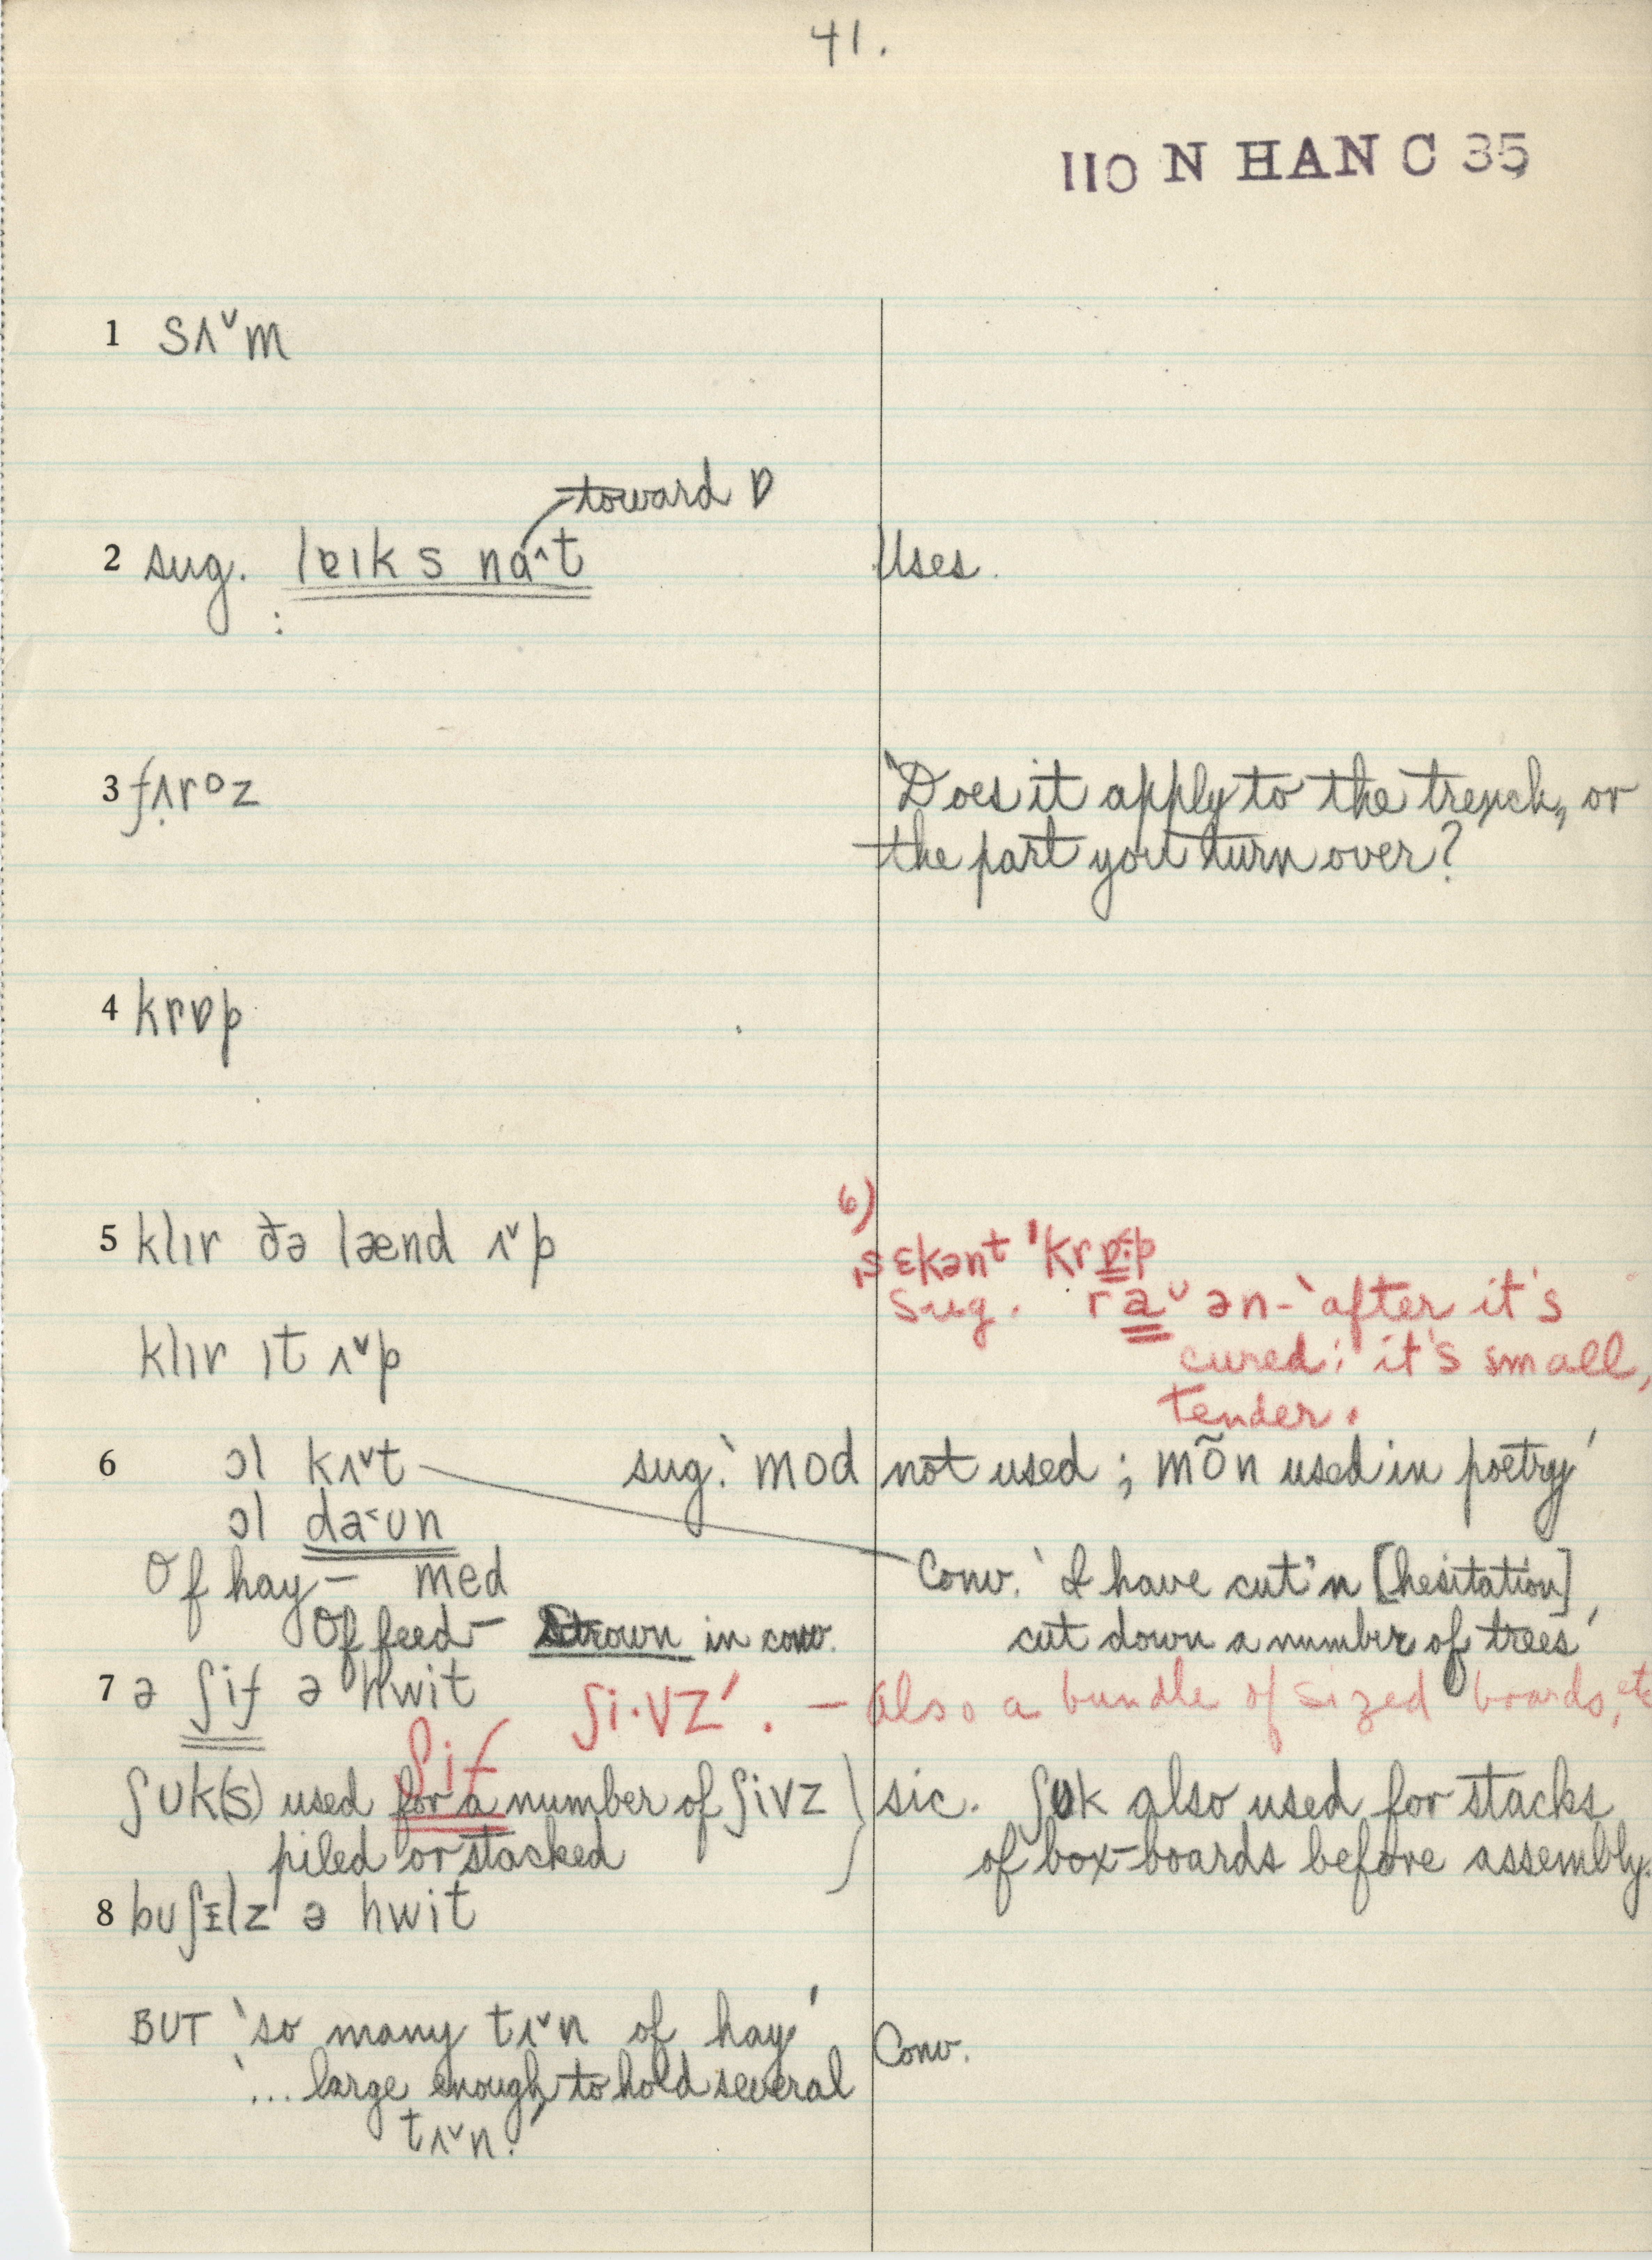 41.
110 N HAN C 35
1 sʌˇm
toward ɒ
2 sug. lɐɪks na^t Uses.
3 fʌ̣roz 'Does it apply to the trench, or
the part you turn over?
4 krɒp
6)
5 klɪr ðə lænd ʌˇp ˌsɛkənt ˈkrɒp
sug. raᵕən - 'after it's
klɪr ɪt ʌˇp cured; it's small,
tender.
6 ɔl kʌˇt sug. 'mod not used; mõn used in poetry'
ɔl da˂ʊn
Of hay - med Conv. 'I have cut'n [hesitation]
Of feed - Strown in conv. cut down a number of trees'
7 ə ʃif ə hwit ʃi·vz'. - also a bundle of sized boards, etc
ʃif
ʃʊk(s) used for a number of ʃivz } sic. ʃʊk also used for stacks
piled or stacked of box-boards before assembly.
8 bʊʃɪlz ə hwit
BUT 'so many tʌˇn of hay' Conv.
'... large enough to hold several
tʌˇn.'